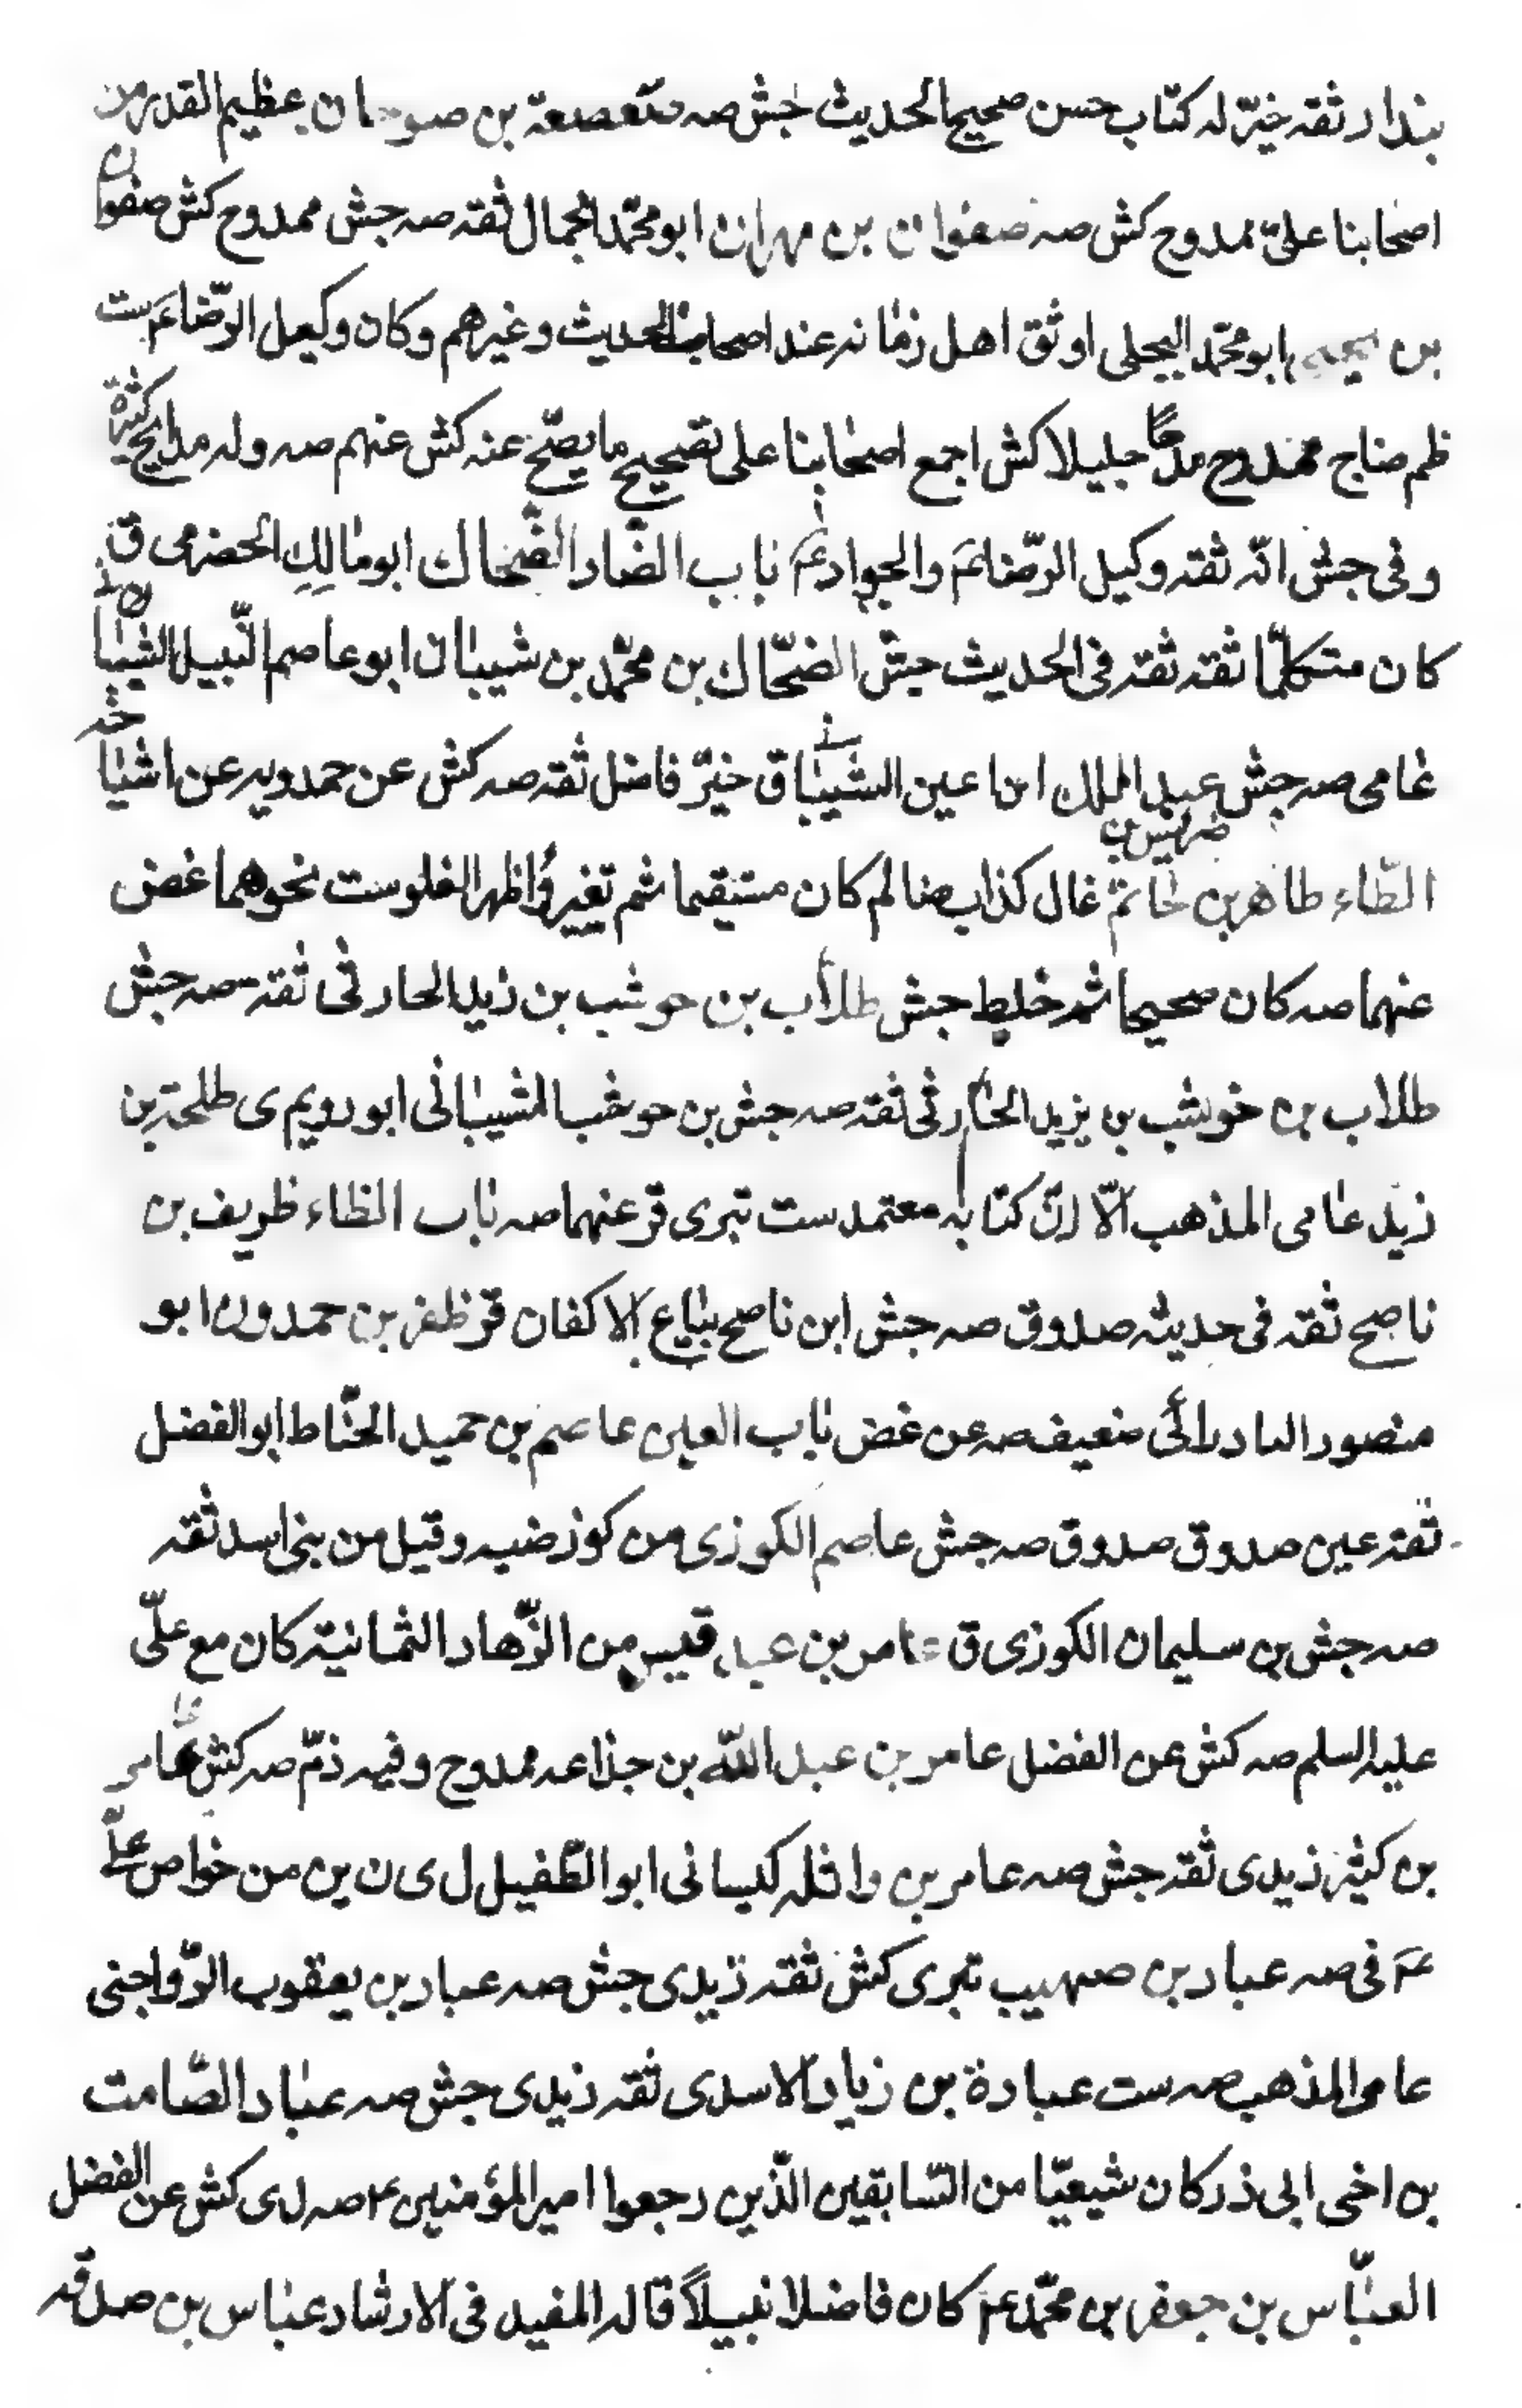 بندار ثقه خيّر له كتاب حسن صحيح الحديث جش صه صعصعة بن صوحان عظيم القدر من
اصحابنا علىّ ممدوح كش صه صفوان بن مهران ابو محمّد الجمال ثقه صه جش ممدوح كش صفوان
بن يحيى ابو محمّد البجلى اوثق اهل زمانه عند اصحابنا الحديث وغيرهم وكان وكيل الرّضا عم ست
ظم ضاج ممدوح مدحًا جليلا كش اجمع اصحابنا على تصحيح ما يصحّ عنه كش عنهم صه وله مدايح كثيرة
وفى جش انّه ثقه وكيل الرّضا عم والجواد عم باب الضّاد الضّحاك ابو مالك الحضرمى ق
كان متكلمّا ثقه ثقه فى الحديث جش الضحّاك بن محمّد بن شيبان ابو عاصم النّبيل الشيبانى
عامى صه جش ضريس بن عبد الملك ابن اعين الشيبانى ق خيّر فاضل ثقه صه كش عن حمدويه عن اشياخه
الطّاء طاهر بن حاتم غال كذاب ضا لم كان مستقيما ثم تغير واظهر الغلو ست نحوهما غض
عنهما صه كان صحيحا ثم خلط جش طلاب بن حوشب بن زيد الحارثى ثقه صه جش
طلاب بن حوشب بن يزيد الحارثى ثقه صه جش بن حوشب الشيبانى ابو رويم ى طلحة بن
زيد عامى المذهب الّا انّ كتابه معتمد ست تبرى قر عنهما صه باب الظاء ظريف بن
ناصح ثقه فى حديثه صدوق صه جش ابن ناصح بياع الاكفان قر ظفر بن حمدون ابو
منصور البادرائى ضعيف صه عن غض باب العين عاصم بن حميد الحنّاط ابو الفضل
ثقه عين صدوق صدوق صه جش عاصم الكوزى من كوز ضبه وقيل من بنى اسد ثقه
صه جش بن سليمان الكوزى ق عامر بن عبد قيس من الزّهاد الثمانية كان مع علىّ
عليه السلم صه كش عن الفضل عامر بن عبد اللّه بن جذاعه ممدوح وفيه ذمّ صه كش عامر
بن كثير زيدى ثقه جش صه عامر بن واثله كيسانى ابو الطّفيل ل ى ن ين من خواص علىّ
عم فى صه عباد بن صهيب تبرى كش ثقه زيدى جش صه عباد بن يعقوب الرّواجنى
عامى المذهب صه ست عبادة بن زياد الاسدى ثقه زيدى جش صه عباد الصّامت
بن اخى ابى ذر كان شيعيّا من السّابقين الّذين رجعوا امير المؤمنين ع م صه ل ى كش عن الفضل
العبّاس بن جعفر بن محمّد عم كان فاضلا نبيلاً قاله المفيد فى الارشاد عباس بن صدقه